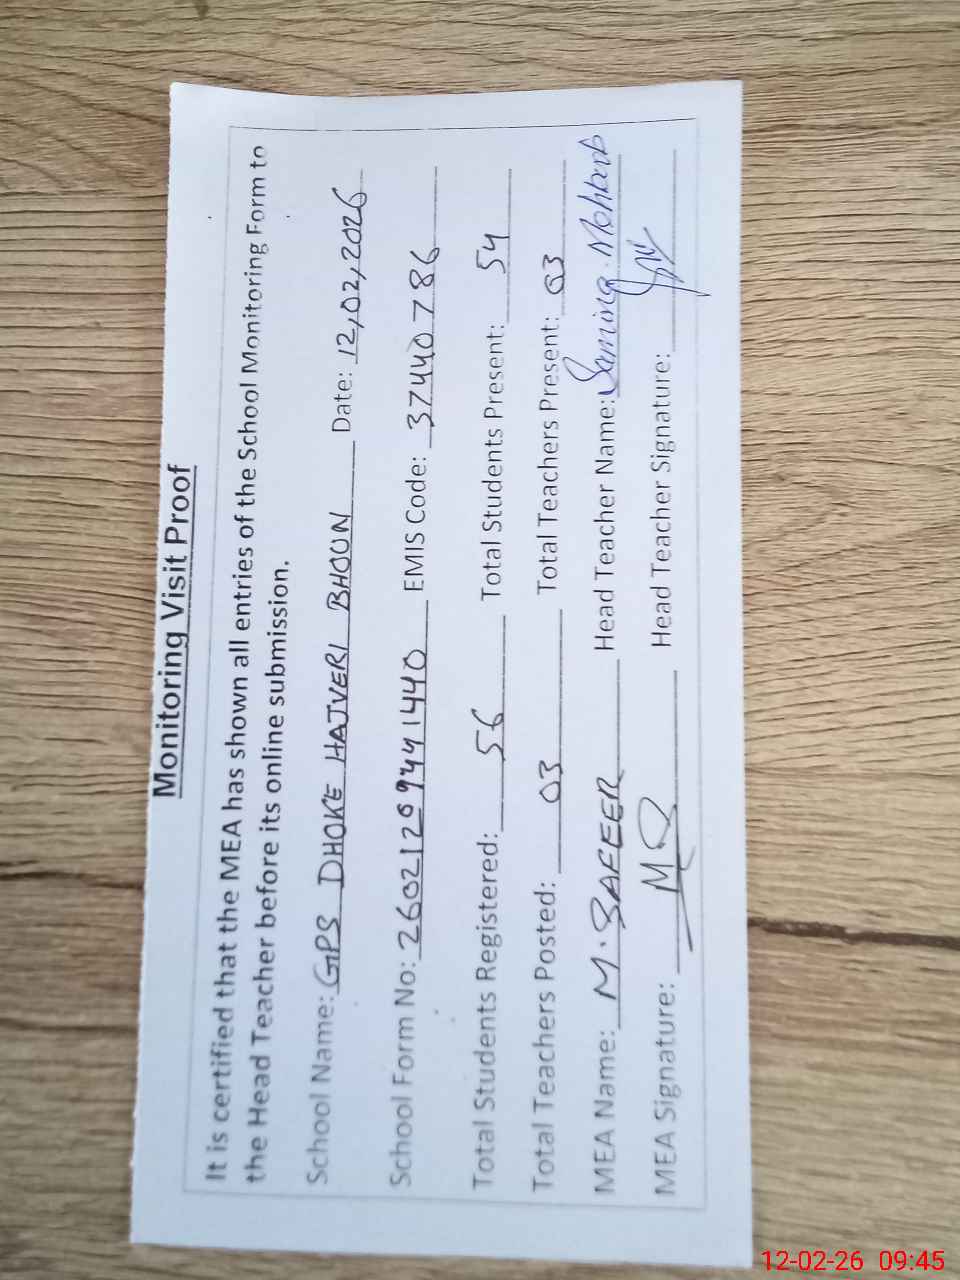 Monitoring Visit Proof
It is certified that the MEA has shown all entries of the School Monitoring Form to
the Head Teacher before its online submission.
School Name: GPS DHOKE HAJVERI BHOUN Date: 12,02,2026
School Form No: 2602120944 1440 EMIS Code: 37440786
Total Students Registered: 56 Total Students Present: 54
Total Teachers Posted: 03 Total Teachers Present: 03
MEA Name: M. SAFEER Head Teacher Name:
MEA Signature: Head Teacher Signature:
12-02-26 09:45